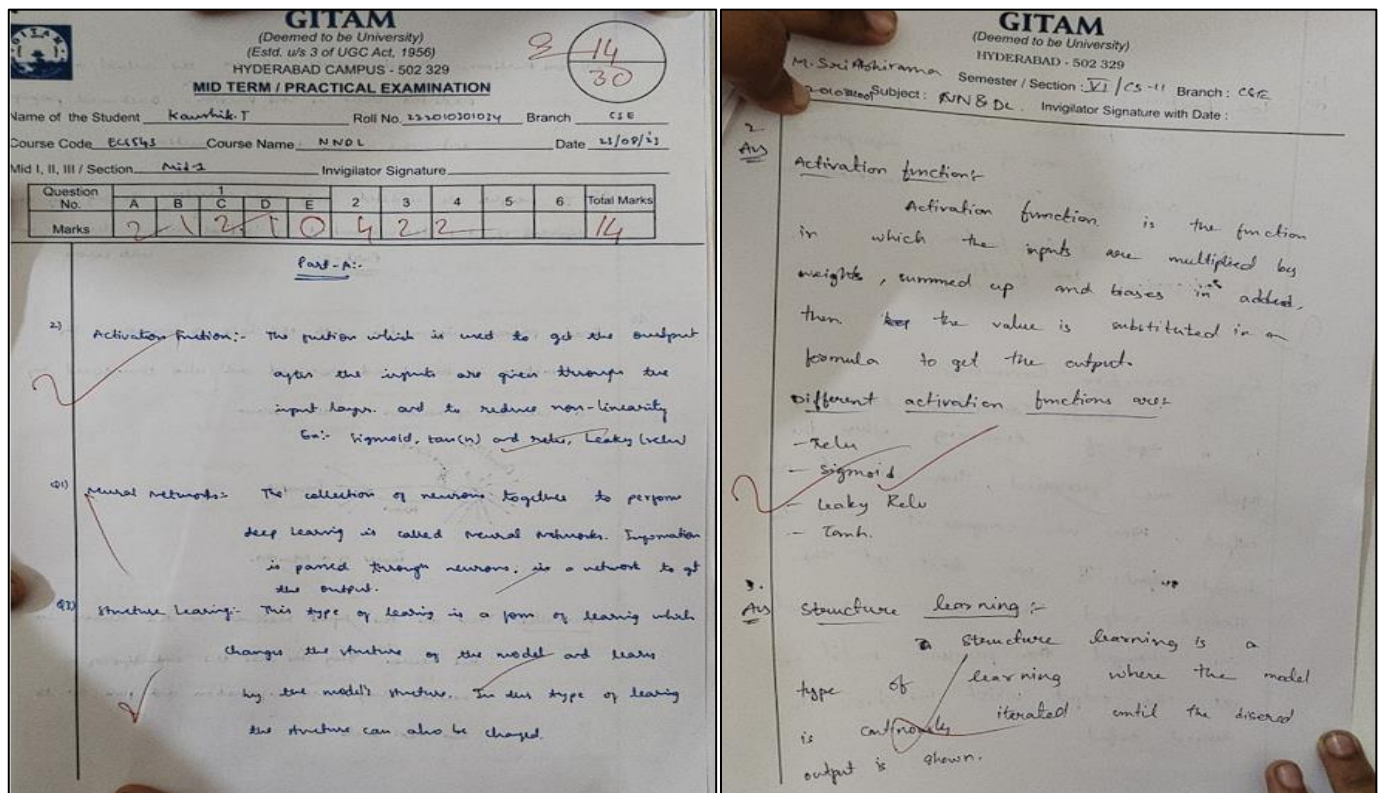 GITAM
(Deemed to be University)
(Estd. u/s 3 of UGC Act, 1956)
HYDERABAD CAMPUS - 502 329
MID TERM / PRACTICAL EXAMINATION
14
30
Name of the Student Kaushik.T Roll No. 222010301034 Branch CSE
Course Code ECS543 Course Name NNDL Date
Mid I, II, III / Section Mid-1 Invigilator Signature
Question No. 1 A B C D E 2 3 4 5 6 Total Marks
Marks 2 1 2 1 0 4 2 2 14
Part-A:-
2) Activation Function:- The function which is used to get the output
after the inputs are given through the
input layer. and to reduce non-linearity
Ex:- Sigmoid, tan(h) and relu, Leaky (relu)
Q1) Neural Networks:- The collection of neurons together to perform
deep learning is called neural networks. Information
is passed through neurons, in a network to get
the output.
Q3) Structure Learning:- This type of learing is a form of learing which
changes the structure of the model and learns
by the model's structure. In this type of learing
the structure can also be changed.
GITAM
(Deemed to be University)
HYDERABAD - 502 329
M. Sri Abhirama Semester / Section : VI / CS-11 Branch : CSE
Subject : NN & DL Invigilator Signature with Date :
2.
Ans
Activation function:-
Activation function is the function
in which the inputs are multiplied by
weights, summed up and biases is added.
then the value is substituted in an
formula to get the output.
Different activation functions are:
- Relu
- Sigmoid
- Leaky Relu
- Tanh.
3.
Ans Structure learning:-
Structure learning is a
type of learning where the model
is iterated until the disered
output is shown.